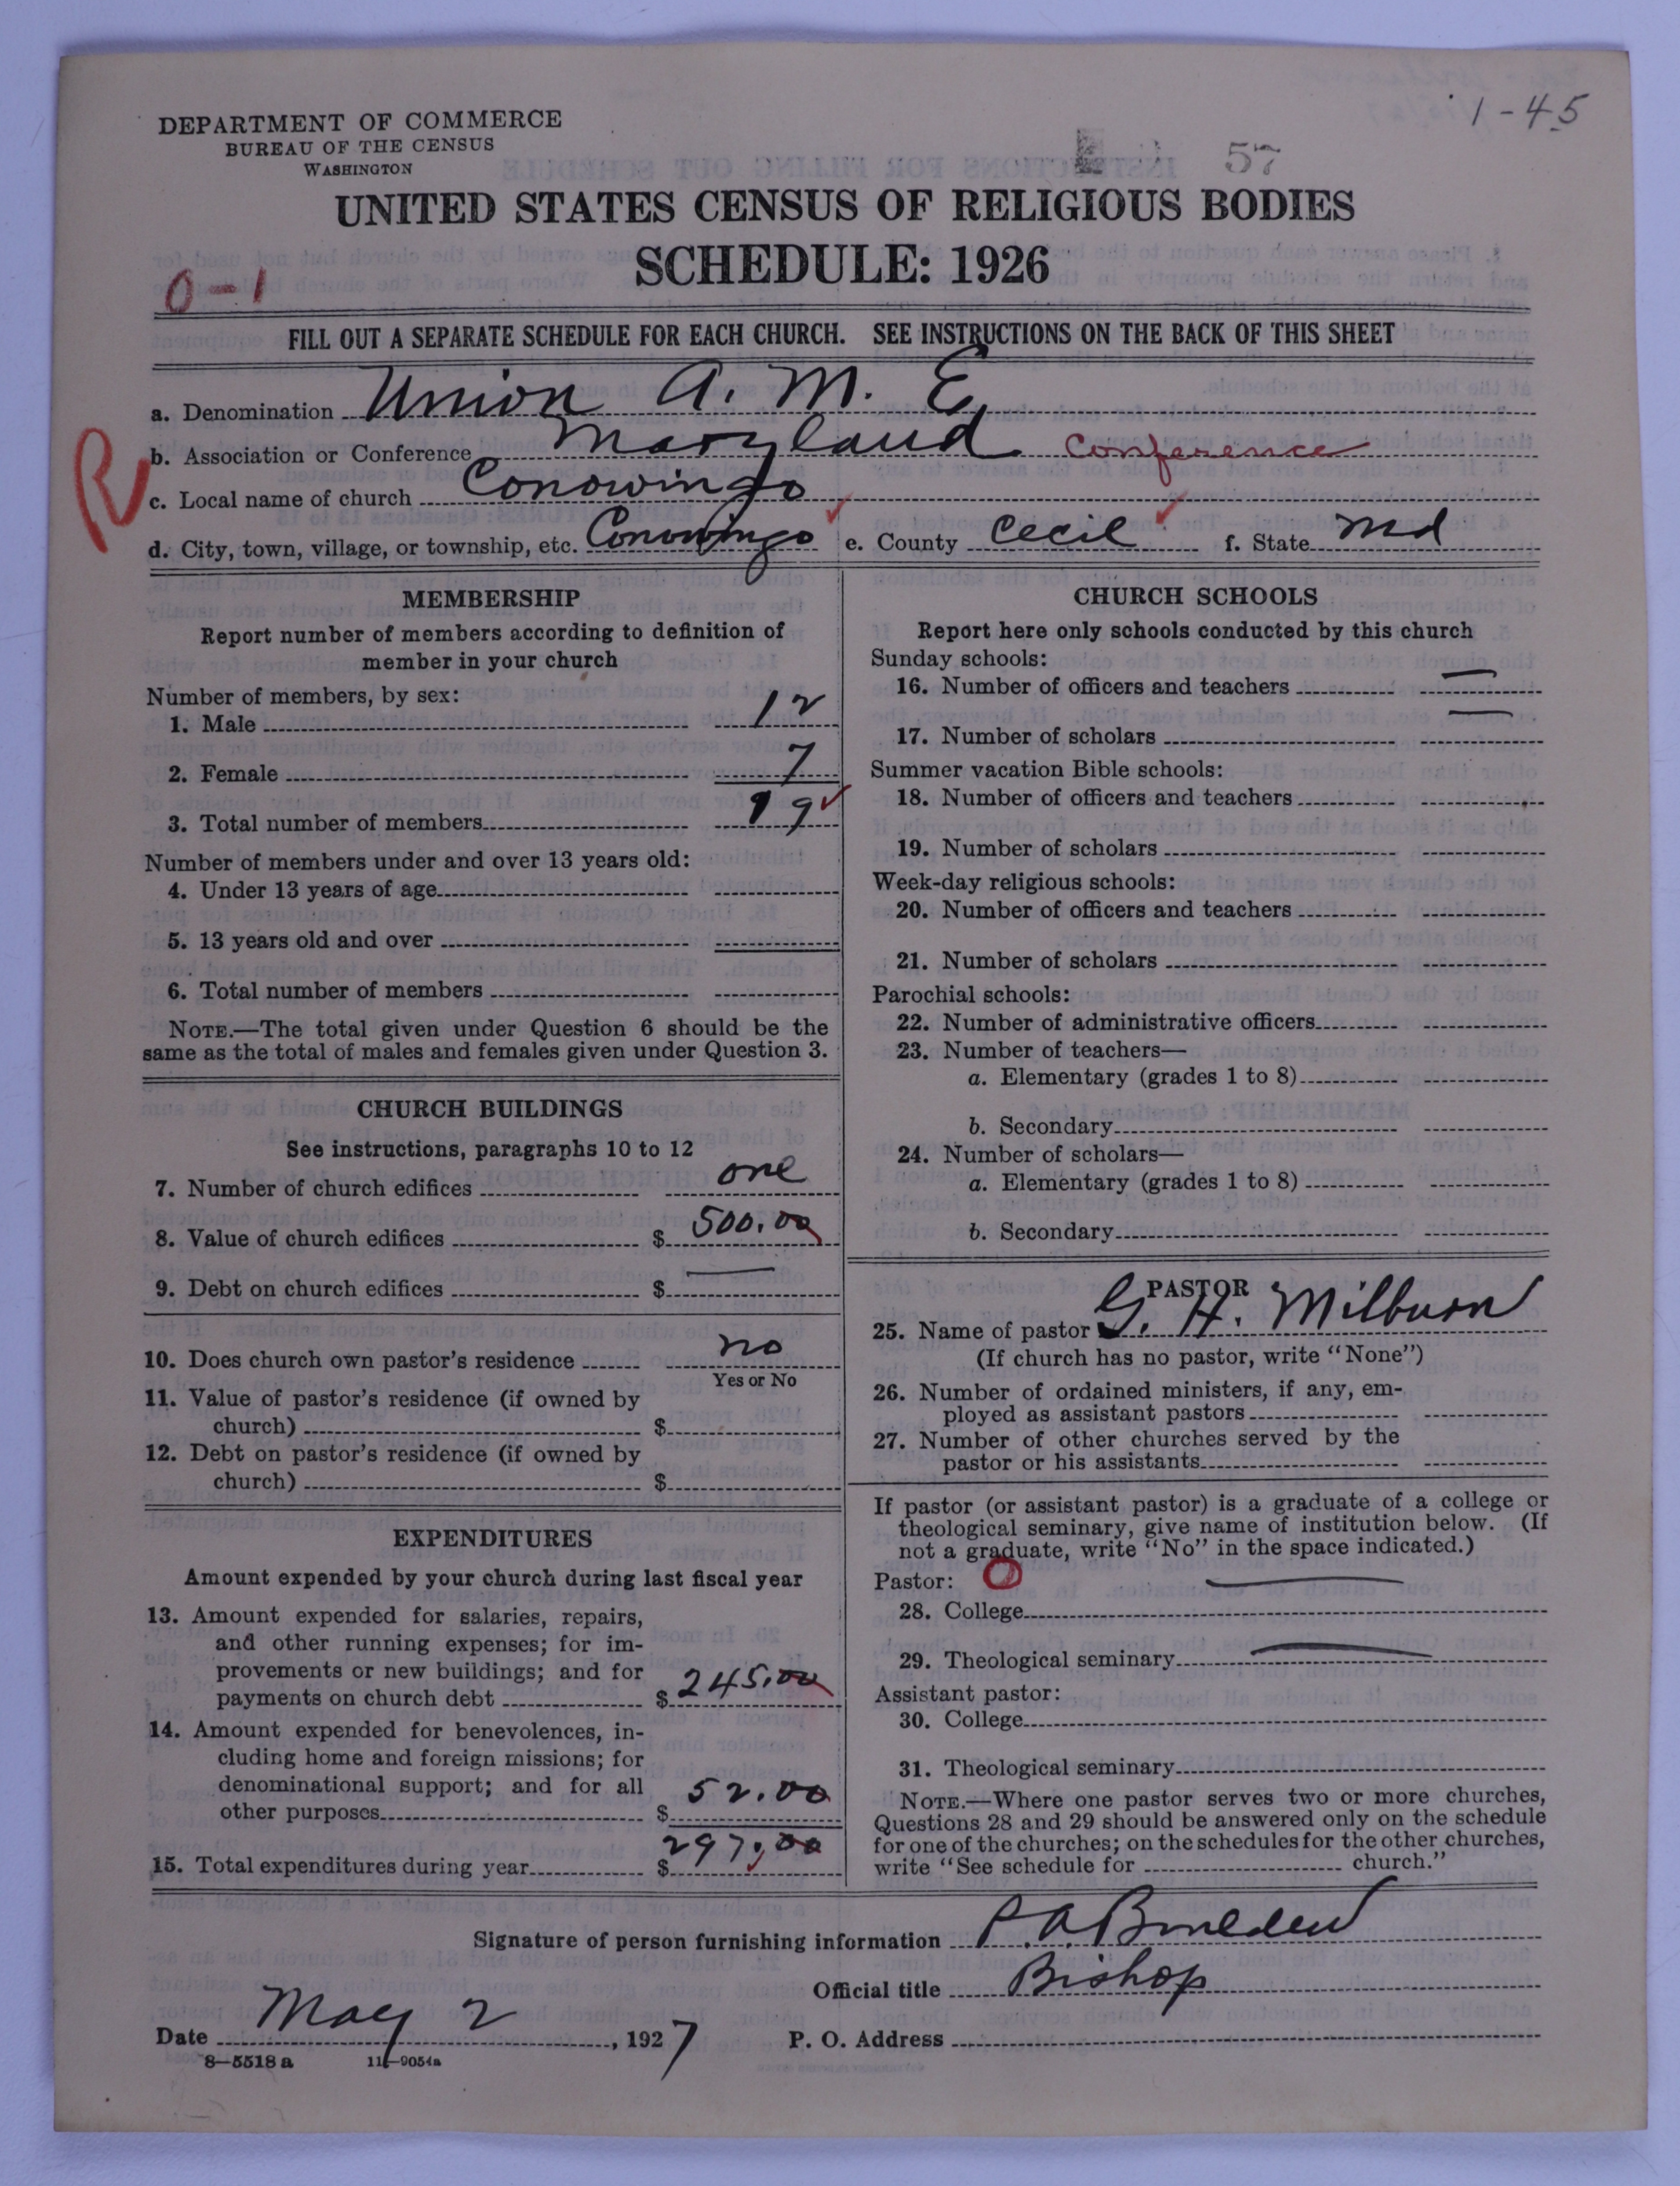 1-45
DEPARTMENT OF COMMERCE
BUREAU OF THE CENSUS
WASHINGTON
57
UNITED STATES CENSUS OF RELIGIOUS BODIES
SCHEDULE: 1926
0-1
FILL OUT A SEPARATE SCHEDULE FOR EACH CHURCH. SEE INSTRUCTIONS ON THE BACK OF THIS SHEET
R
a. Denomination Union A. M. E.
b. Association or Conference Maryland Conference
c. Local name of church Conowingo
d. City, town, village, or township, etc. Conowingo e. County Cecil f. State Md
MEMBERSHIP
Report number of members according to definition of
member in your church
Number of members, by sex:
1. Male 12
2. Female 7
3. Total number of members 19
Number of members under and over 13 years old:
4. Under 13 years of age
5. 13 years old and over
6. Total number of members
NOTE.—The total given under Question 6 should be the
same as the total of males and females given under Question 3.
CHURCH BUILDINGS
See instructions, paragraphs 10 to 12
7. Number of church edifices one
8. Value of church edifices $ 500.00
9. Debt on church edifices $ —
10. Does church own pastor's residence no
Yes or No
11. Value of pastor's residence (if owned by
church) $
12. Debt on pastor's residence (if owned by
church) $
EXPENDITURES
Amount expended by your church during last fiscal year
13. Amount expended for salaries, repairs,
and other running expenses; for im-
provements or new buildings; and for
payments on church debt $ 245.00
14. Amount expended for benevolences, in-
cluding home and foreign missions; for
denominational support; and for all
other purposes $ 52.00
15. Total expenditures during year $ 297.00
CHURCH SCHOOLS
Report here only schools conducted by this church
Sunday schools:
16. Number of officers and teachers —
17. Number of scholars —
Summer vacation Bible schools:
18. Number of officers and teachers
19. Number of scholars
Week-day religious schools:
20. Number of officers and teachers
21. Number of scholars
Parochial schools:
22. Number of administrative officers
23. Number of teachers—
a. Elementary (grades 1 to 8)
b. Secondary
24. Number of scholars—
a. Elementary (grades 1 to 8)
b. Secondary
PASTOR
25. Name of pastor G. H. Milburn
(If church has no pastor, write "None")
26. Number of ordained ministers, if any, em-
ployed as assistant pastors
27. Number of other churches served by the
pastor or his assistants
If pastor (or assistant pastor) is a graduate of a college or
theological seminary, give name of institution below. (If
not a graduate, write "No" in the space indicated.)
Pastor: O
28. College —
29. Theological seminary —
Assistant pastor:
30. College
31. Theological seminary
NOTE.—Where one pastor serves two or more churches,
Questions 28 and 29 should be answered only on the schedule
for one of the churches; on the schedules for the other churches,
write "See schedule for church."
Signature of person furnishing information
Official title Bishop
Date May 2, 1927 P. O. Address
8-5518 a 11-9054a